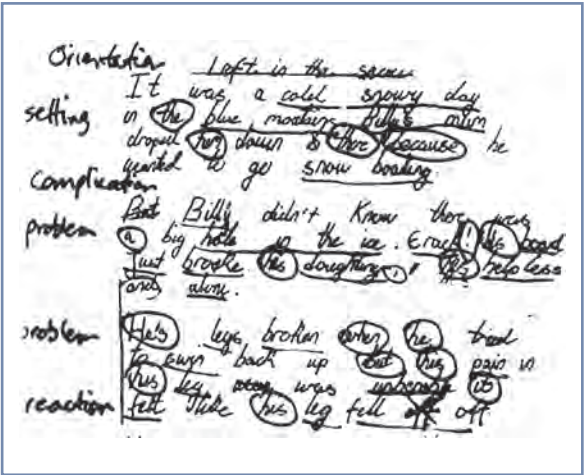 Orientation
Left in the snow
It was a cold snowy day
setting in the blue montains Billy's mum
droped him down there because he
wanted to go snow boading.
Complication
But Billy didn't Know there was
problem a big hole in the ice. Crack! his board
just brooke his
help less
and alone.
problem He's legs broken when he tried
to swm back up but his pain in
his leg was unberable it
reaction felt like his leg fell off